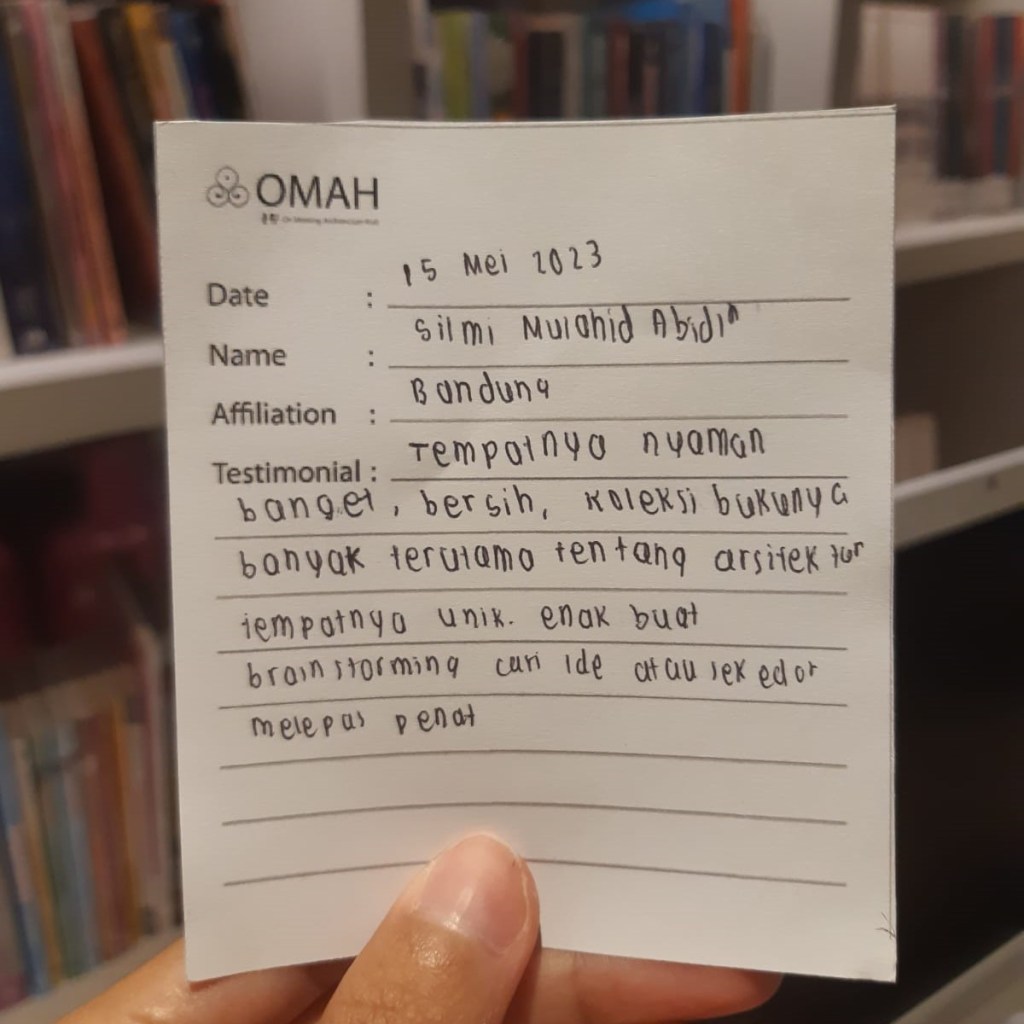 OMAH
Date : 15 Mei 2023
Name : Silmi Mujahid Abidin
Affiliation : Bandung
Testimonial : Tempatnya nyaman
banget, bersih, koleksi bukunya
banyak terutama tentang arsitektur
tempatnya unik. enak buat
brainstorming cari ide atau sekedar
melepas penat